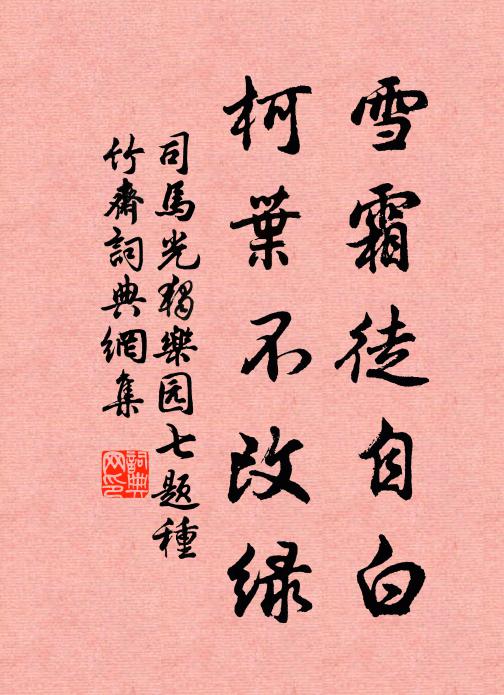 雪霜徒自白
柯葉不改緑
司馬光獨樂园七题種
竹齋詞典網集
詞典
网印